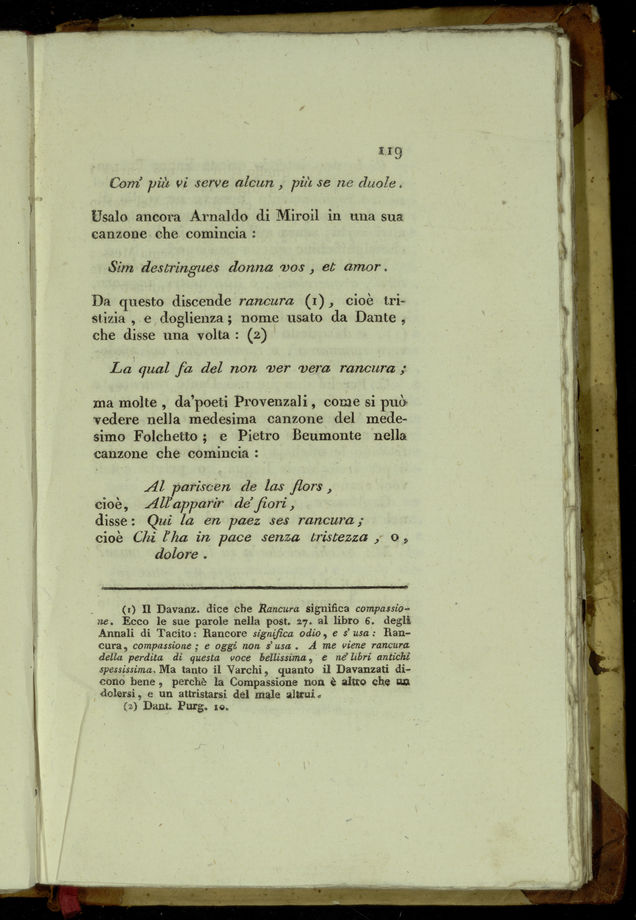 119
Com' più vi serve alcun, più se ne duole.
Usalo ancora Arnaldo di Miroil in una sua
canzone che comincia :
Sim destringues donna vos, et amor.
Da questo discende rancura (1), cioè tri-
stizia, e doglienza; nome usato da Dante,
che disse una volta : (2)
La qual fa del non ver vera rancura;
ma molte, da'poeti Provenzali, come si può
vedere nella medesima canzone del mede-
simo Folchetto; e Pietro Beumonte nella
canzone che comincia :
Al pariscen de las flors,
cioè, All'apparir de' fiori,
disse: Qui la en paez ses rancura;
cioè Chi l'ha in pace senza tristezza, o,
dolore.
(1) Il Davanz. dice che Rancura significa compassio-
ne. Ecco le sue parole nella post. 27. al libro 6. degli
Annali di Tacito: Rancore significa odio, e s'usa: Ran-
cura, compassione; e oggi non s'usa. A me viene rancura
della perdita di questa voce bellissima, e ne' libri antichi
spessissima. Ma tanto il Varchi, quanto il Davanzati di-
cono bene, perchè la Compassione non è altro che un
dolersi, e un attristarsi del male altrui.
(2) Dant. Purg. 10.